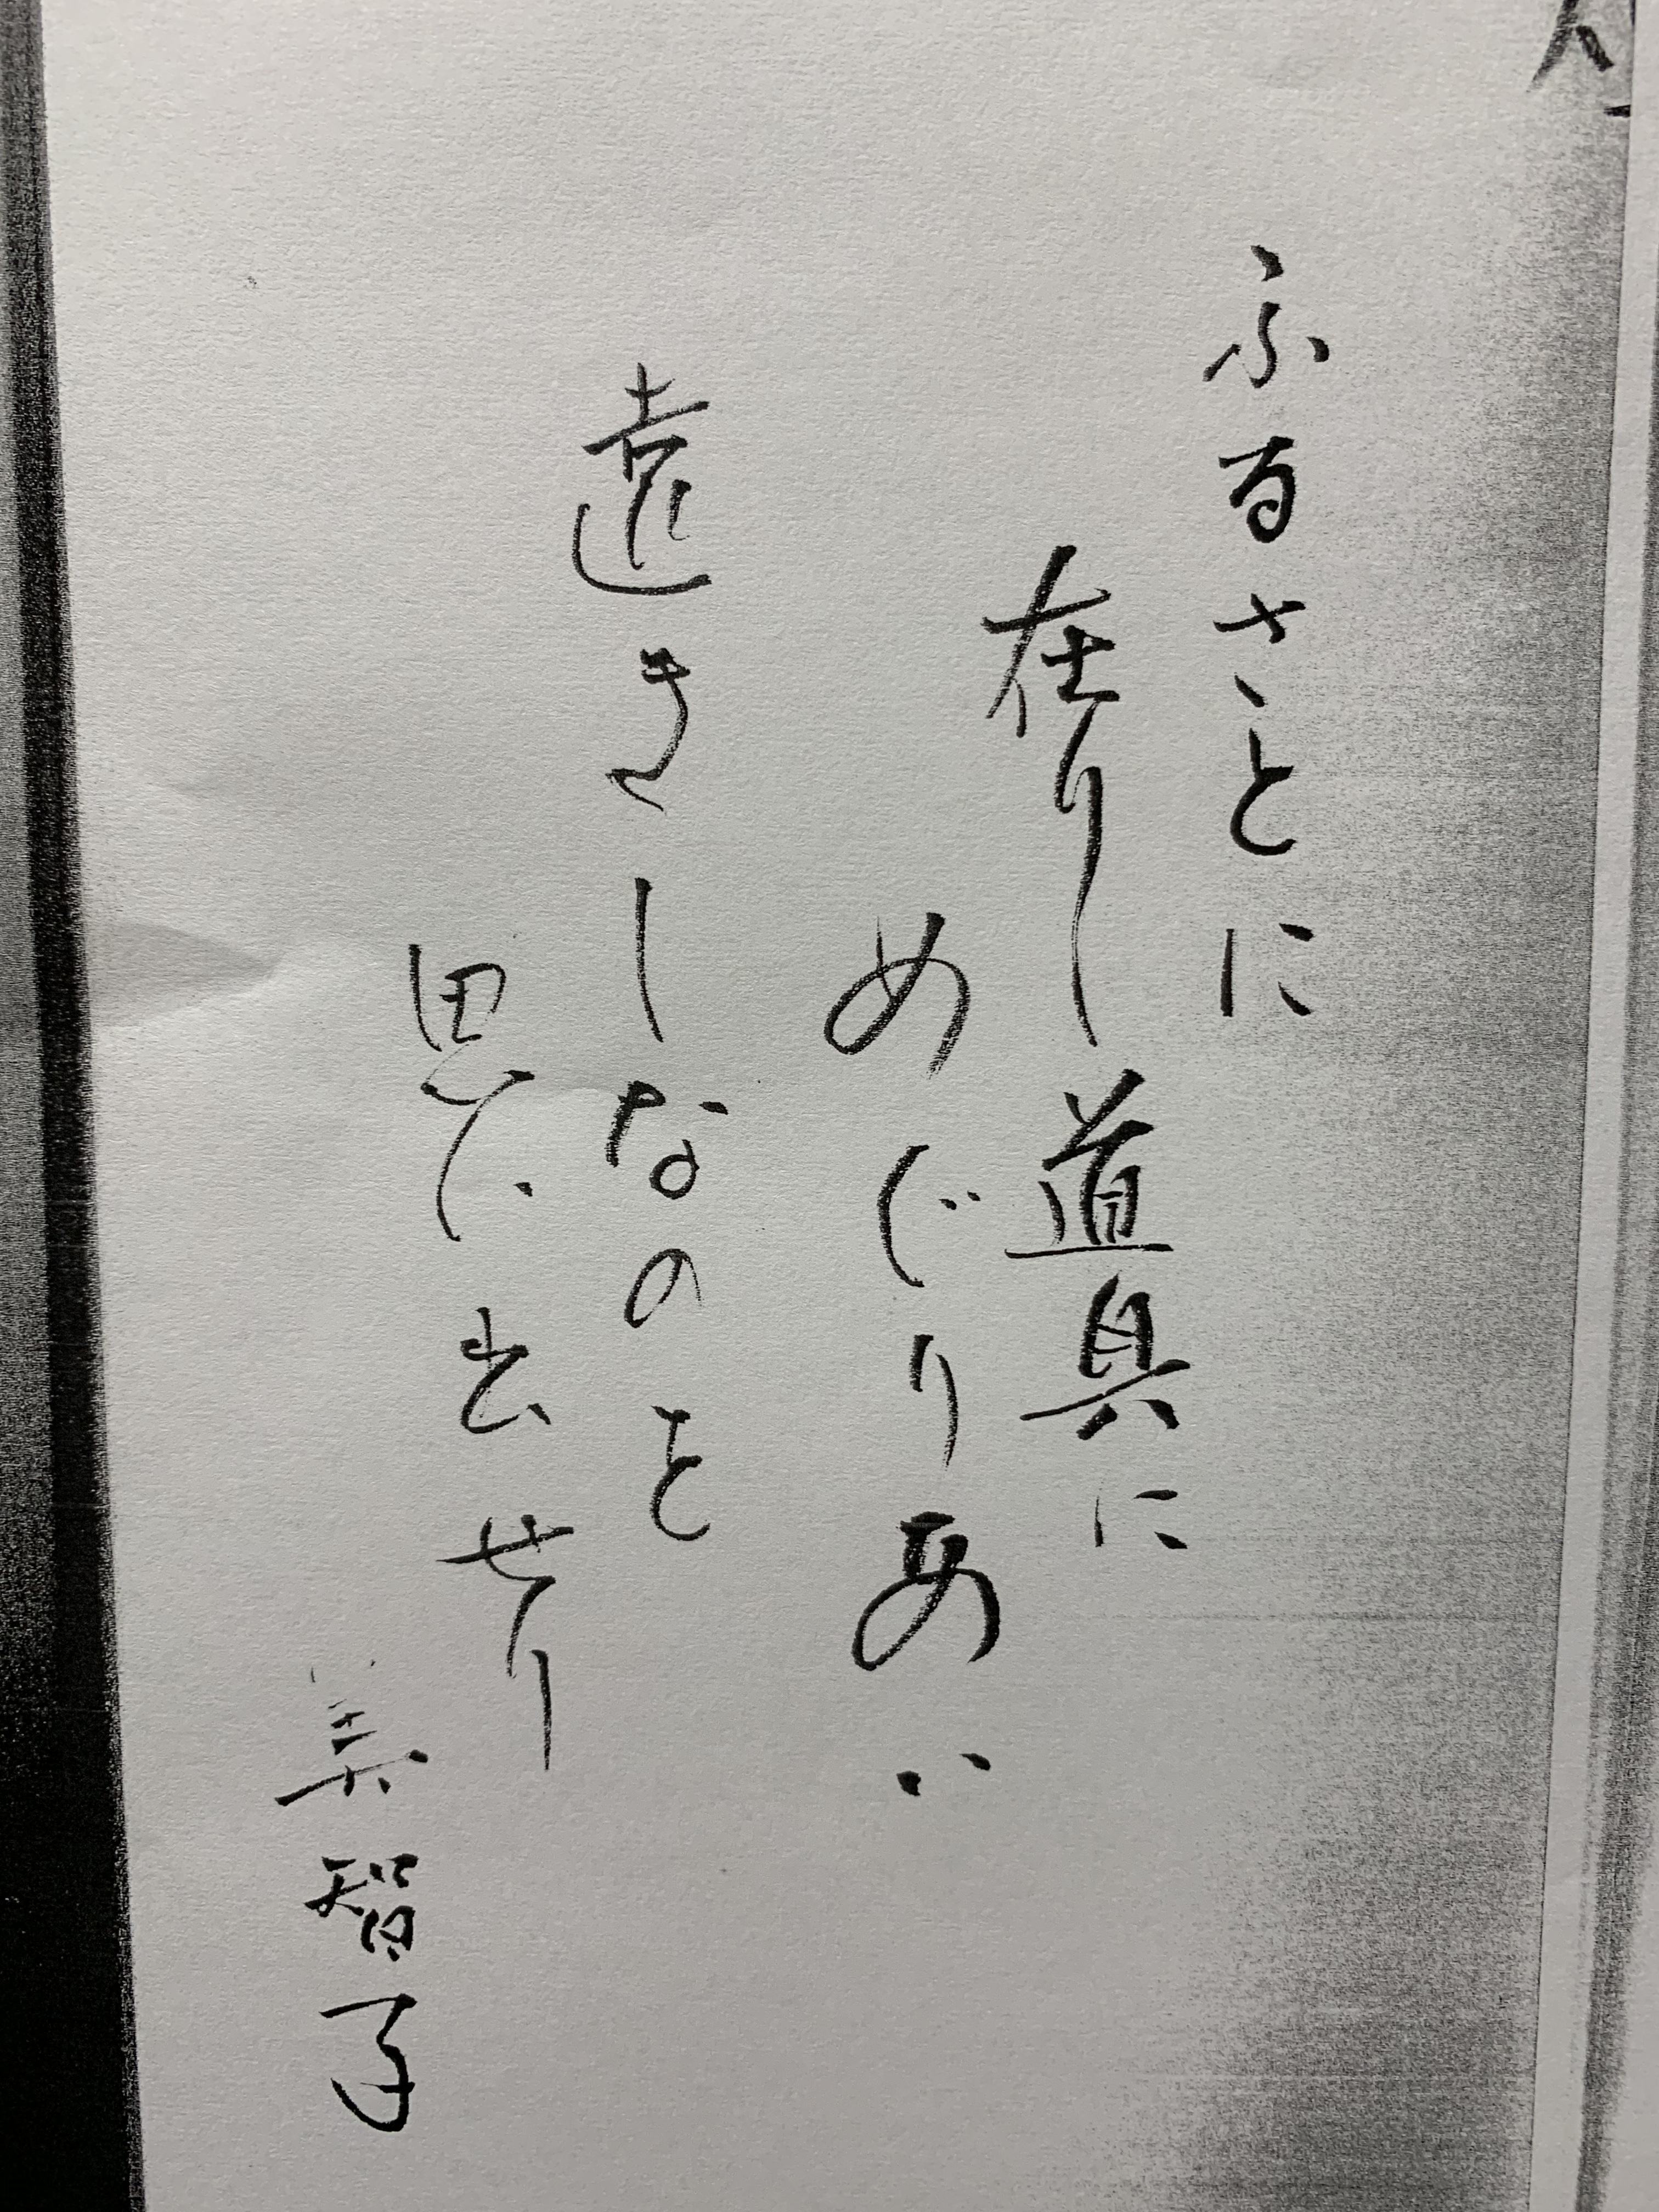 ふるさとに
在りし道具に
めぐりあい
遠きしなのを
思い出せり
美智子